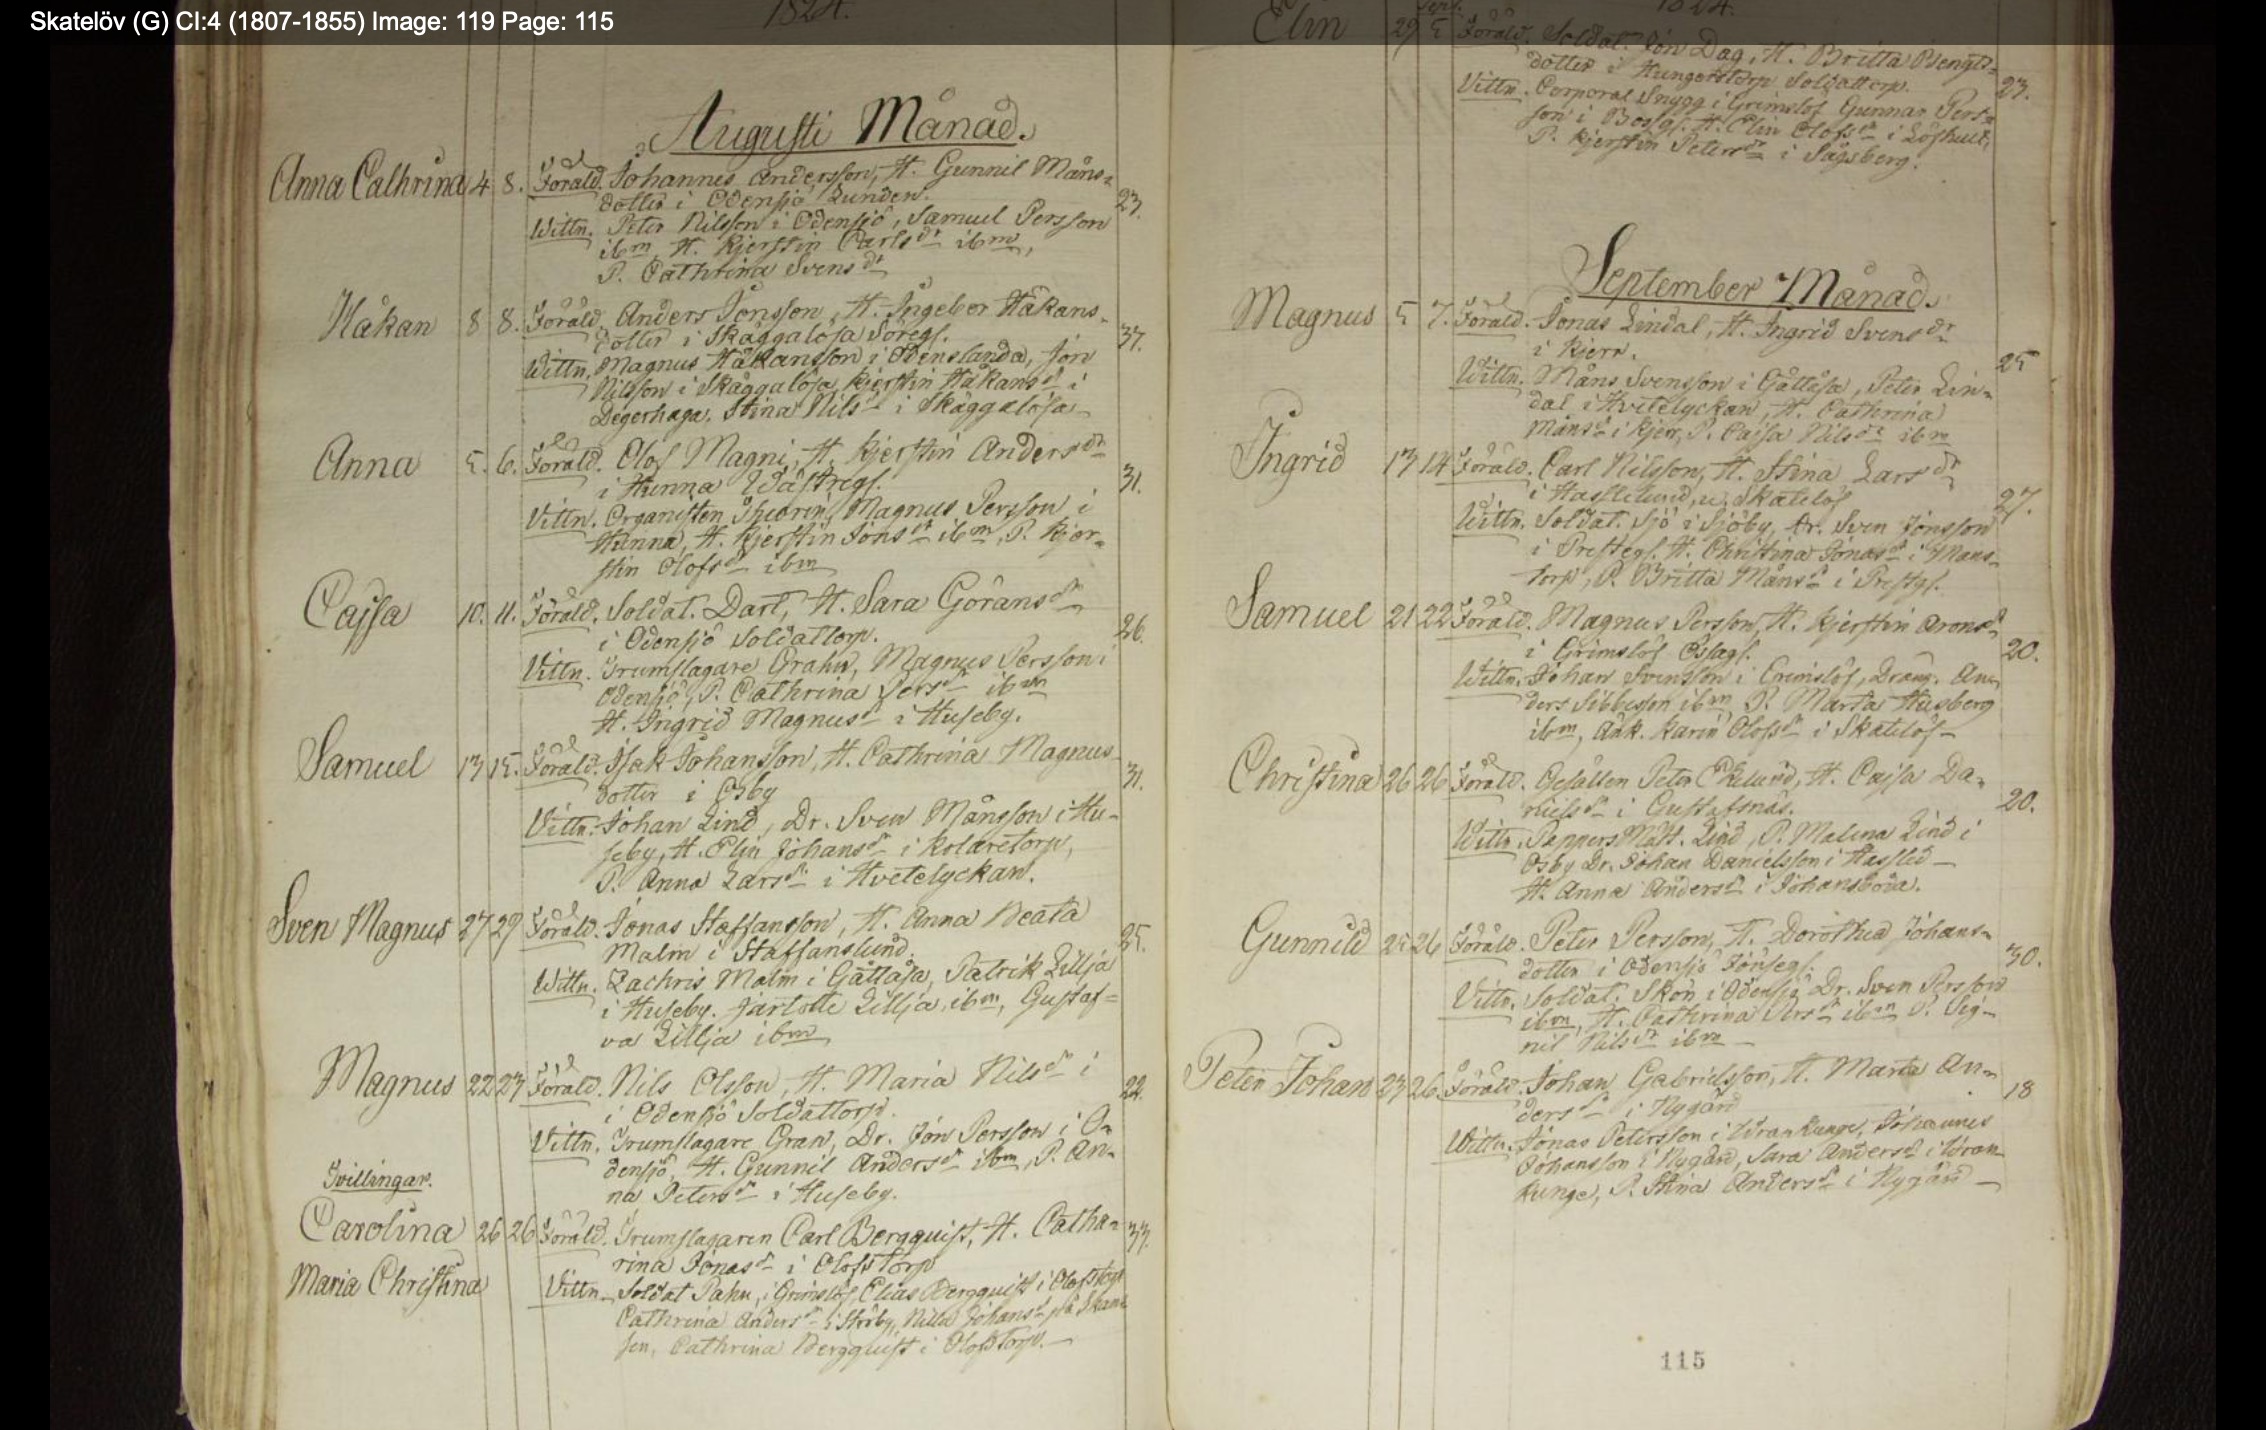 Skatelöv (G) CI:4 (1807-1855) Image: 119 Page: 115
1824.
Augusti Månad.
Anna Cathrina 4 8. Föräld. Johannes Andersson, H. Gunnil Måns-
dotter i Odensjö Lunden. 23.
Wittn. Peter Nilsson i Odensjö, Samuel Persson
ibm, H. Kjerstin Carlsdr ibm,
P. Cathrina Svensdr
Håkan 8 8. Föräld. Anders Jonsson, H. Ingebor Håkans-
dotter i Skäggalösa Söregl. 37.
Wittn. Magnus Håkansson i Odenslanda, Jon
Nilsson i Skäggalösa, Kjerstin Håkansdr i
Degerhaga, Stina Nilsdr i Skäggalösa
Anna 5. 6. Föräld. Olof Magni, H. Kjerstin Andersdr
i Hunna Wästregl. 31.
Vittn. Organisten Magnus Persson i
Hunna, H. Kjerstin Jonsdr ibm, P. Kjer-
stin Olofsdr ibm
Cajsa 10. 11. Föräld. Soldat. Dart, H. Sara Göransdr
i Odensjö Soldattorp. 26.
Vittn. Trumslagare Grahn, Magnus Persson i
Odensjö, P. Cathrina Persdr ibm
H. Ingrid Magnusdr i Huseby.
Samuel 13 15. Föräld. Isak Johansson, H. Cathrina Magnus-
dotter i Osby 31.
Vittn. Johan Lind, Dr. Sven Månsson i Hu-
seby, H. Elin Johansdr i Kolaretorp,
P. Anna Larsdr i Hvetelyckan.
Sven Magnus 27 29 Föräld. Jonas Staffansson, H. Anna Beata
Malm i Staffanslund. 25.
Wittn. Zachris Malm i Gåttåsa, Patrik Lillja
i Huseby. Jarlotte Lillja ibm, Gustaf-
va Lillja ibm
Magnus 22 23 Föräld. Nils Olsson, H. Maria Nilsdr i
i Odensjö Soldattorp. 22.
Vittn. Trumslagare Gran, Dr. Jon Persson i O-
densjö, H. Gunnil Andersdr ibm, P. An-
na Petersdr i Huseby.
Tvillingar.
Carolina 26 26 Föräld. Trumslagaren Carl Bergquist, H. Catha- 33.
rina Jonasdr i Olofstorp
Maria Christina
Vittn. Soldat Pahn, i Grimslöf, Elias Bergquist i Olofstorp
Cathrina Andersdr i Nilla Johansdr på Skans
sen, Cathrina Bergquist i Olofstorp.
Sept. 1824.
Elin 29 5 Föräld. Soldat. Jon Dag, H. Britta Bengts-
dotter i Hungerstorp Soldattorp. 23.
Vittn. Corporal Snygg i Grimslöf Gunnar Pers-
son i H. Elin Olofsdr i Löfhult,
P. Kjerstin Petersdr i Sågsberg.
September Månad.
Magnus 5 7. Föräld. Jonas Lindal, H. Ingrid Svensdr
i Kjerr. 25
Wittn. Måns Svensson i Gåttåsa, Peter Lin-
dal i Hvitelyckan, H. Cathrina
Månsdr i Kjerr, P. Cajsa Nilsdr ibm
Ingrid 13 14 Föräld. Carl Nilsson, H. Stina Larsdr
i Hasslelund, u. Skatelöf 27.
Wittn. Soldat. Sjö i Sjöby, Dr. Sven Jonsson
i Prestegl. H. Christina Jonasdr i Måns-
torp, P. Britta Månsdr i Prestgl.
Samuel 21 22 Föräld. Magnus Persson, H. Kjerstin Aronsdr
i Grimslöf 20.
Wittn. Johan Svensson i Grimslöf, Dräng. An-
ders Sibbesson ibm P. Marta Husberg
ibm, Änk. Karin Olofsdr i Skatelöf
Christina 26 26 Föräld. Gesällen Peter Ekelund, H. Cajsa Da-
nielsdr i Gustafsnäs. 20.
Wittn. PappersMäst. Lind, P. Malena Lind i
Osby Dr. Johan Danielsson i Hassled
H. Anna Andersdr i Johansboda.
Gunnild 25 26 Föräld. Peter Persson, H. Dorothea Johans-
dotter i Odensjö Jonsegl. 30.
Vittn. Soldat. Skön i Odensjö, Dr. Sven Persson
ibm, H. Cathrina Persdr ibm P. Sig-
nil Nilsdr ibm
Peter Johan 23 26. Föräld. Johan Gabrielsson, H. Marta An-
dersdr i Nygård 18
Wittn. Jonas Petersson i Wrankunge, Johannes
Johansson i Nygård, Sara Andersdr i Wran-
kunge, P. Stina Andersdr i Nygård
115